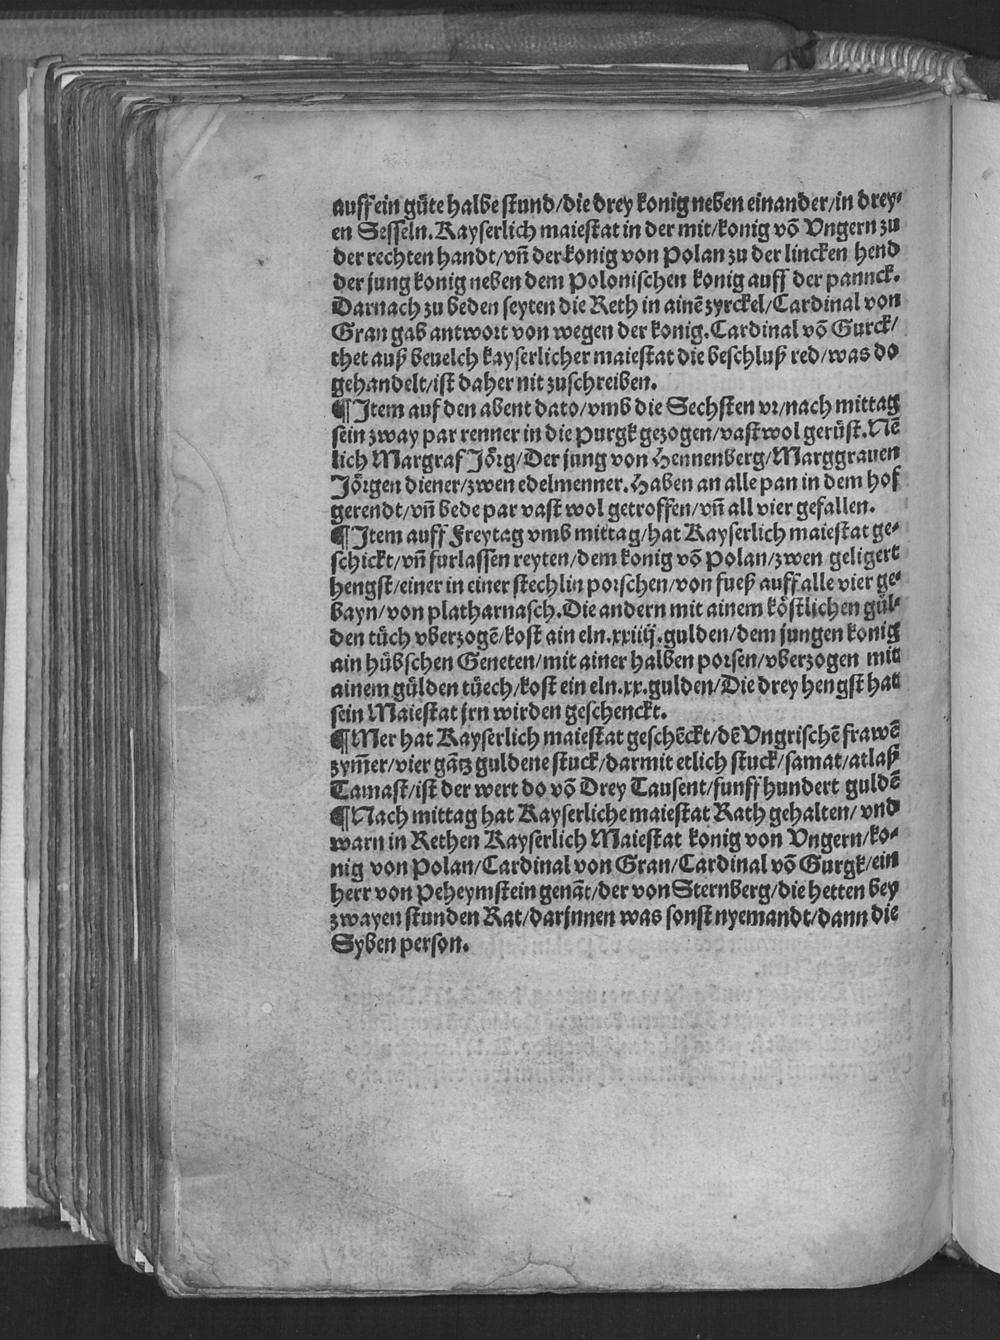 auff ein gůte halbe stund/die drey konig neben einander/in drey-
en Sesseln. Kayserlich maiestat in der mit/konig võ Vngern zu
der rechten handt/vñ der konig von Polan zu der lincken hend
der jung konig neben dem Polonischen konig auff der pannck.
Darnach zu beden seyten die Reth in ainẽ zyrckel/Cardinal von
Gran gab antwort von wegen der konig. Cardinal võ Gurck/
thet auß beuelch kayserlicher maiestat die beschluß red/was do
gehandelt/ist daher nit zuschreiben.
¶ Item auf den abent dato/vmb die Sechsten vr/nach mittag
sein zway par renner in die purgk gezogen/vast wol gerüst. Nẽ
lich Margraf Jörg/Der jung von Hennenberg/Marggrauen
Jörgen diener/zwen edelmenner. Haben an alle pan in dem hof
gerendt/vñ bede par vast wol getroffen/vñ all vier gefallen.
¶ Item auff Freytag vmb mittag/hat Kayserlich maiestat ge-
schickt/vñ furlassen reyten/dem konig võ Polan/zwen geligert
hengst/einer in einer stechlin porschen/von fueß auff alle vier ge-
bayn/von platharnasch. Die andern mit ainem köstlichen gül-
den tůch vberzogẽ/kost ain eln .xxiiij. gulden/dem jungen konig
ain hübschen Geneten/mit ainer halben porsen/vberzogen mit
ainem gülden tüech/kost ein eln .xx. gulden/Die drey hengst hat
sein Maiestat jrn wirden geschenckt.
¶ Mer hat Kayserlich maiestat geschẽckt/dẽ Vngrischẽ frawẽ
zym̃er/vier gãtz guldene stuck/darmit etlich stuck/samat/atlaß
Tamast/ist der wert do võ Drey Tausent/funff hundert guldẽ
¶ Nach mittag hat Kayserliche maiestat Rath gehalten/vnd
warn in Rethen Kayserlich Maiestat konig von Vngern/ko-
nig von Polan/Cardinal von Gran/Cardinal võ Gurgk/ein
herr von Peheymstein genãt/der von Sternberg/die hetten bey
zwayen stunden Rat/darjnnen was sonst nyemandt/dann die
Syben person.